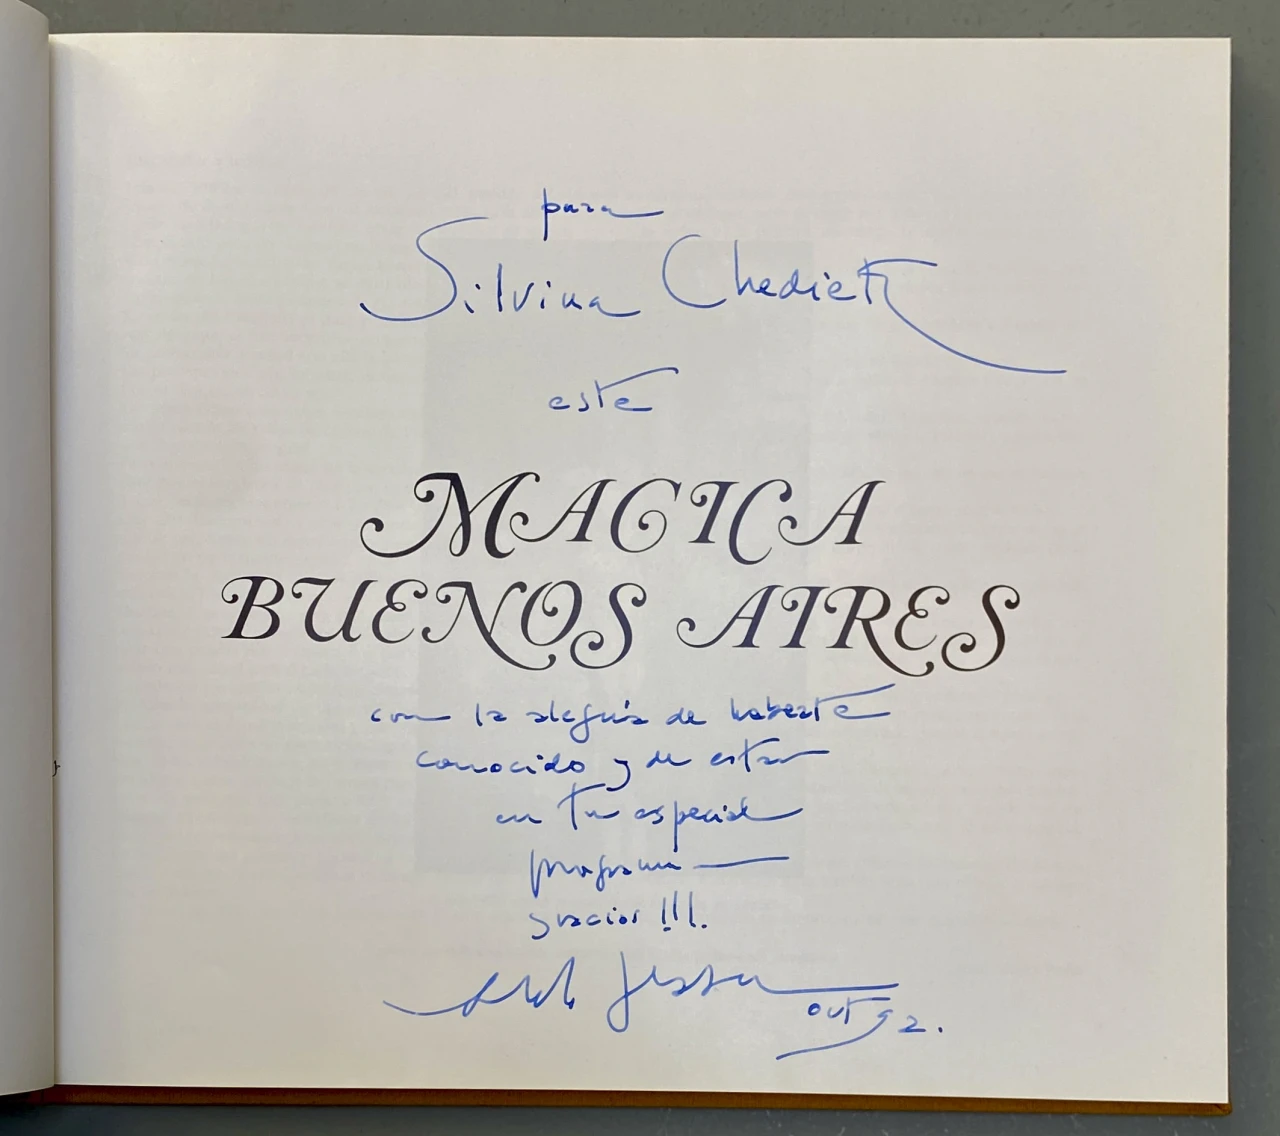 para
Silvina Chediek
este
MAGICA
BUENOS AIRES
con la alegría de haberte
conocido y de estar
en tu especial
programa
gracias !!!.
Aldo Sessa
oct 92.